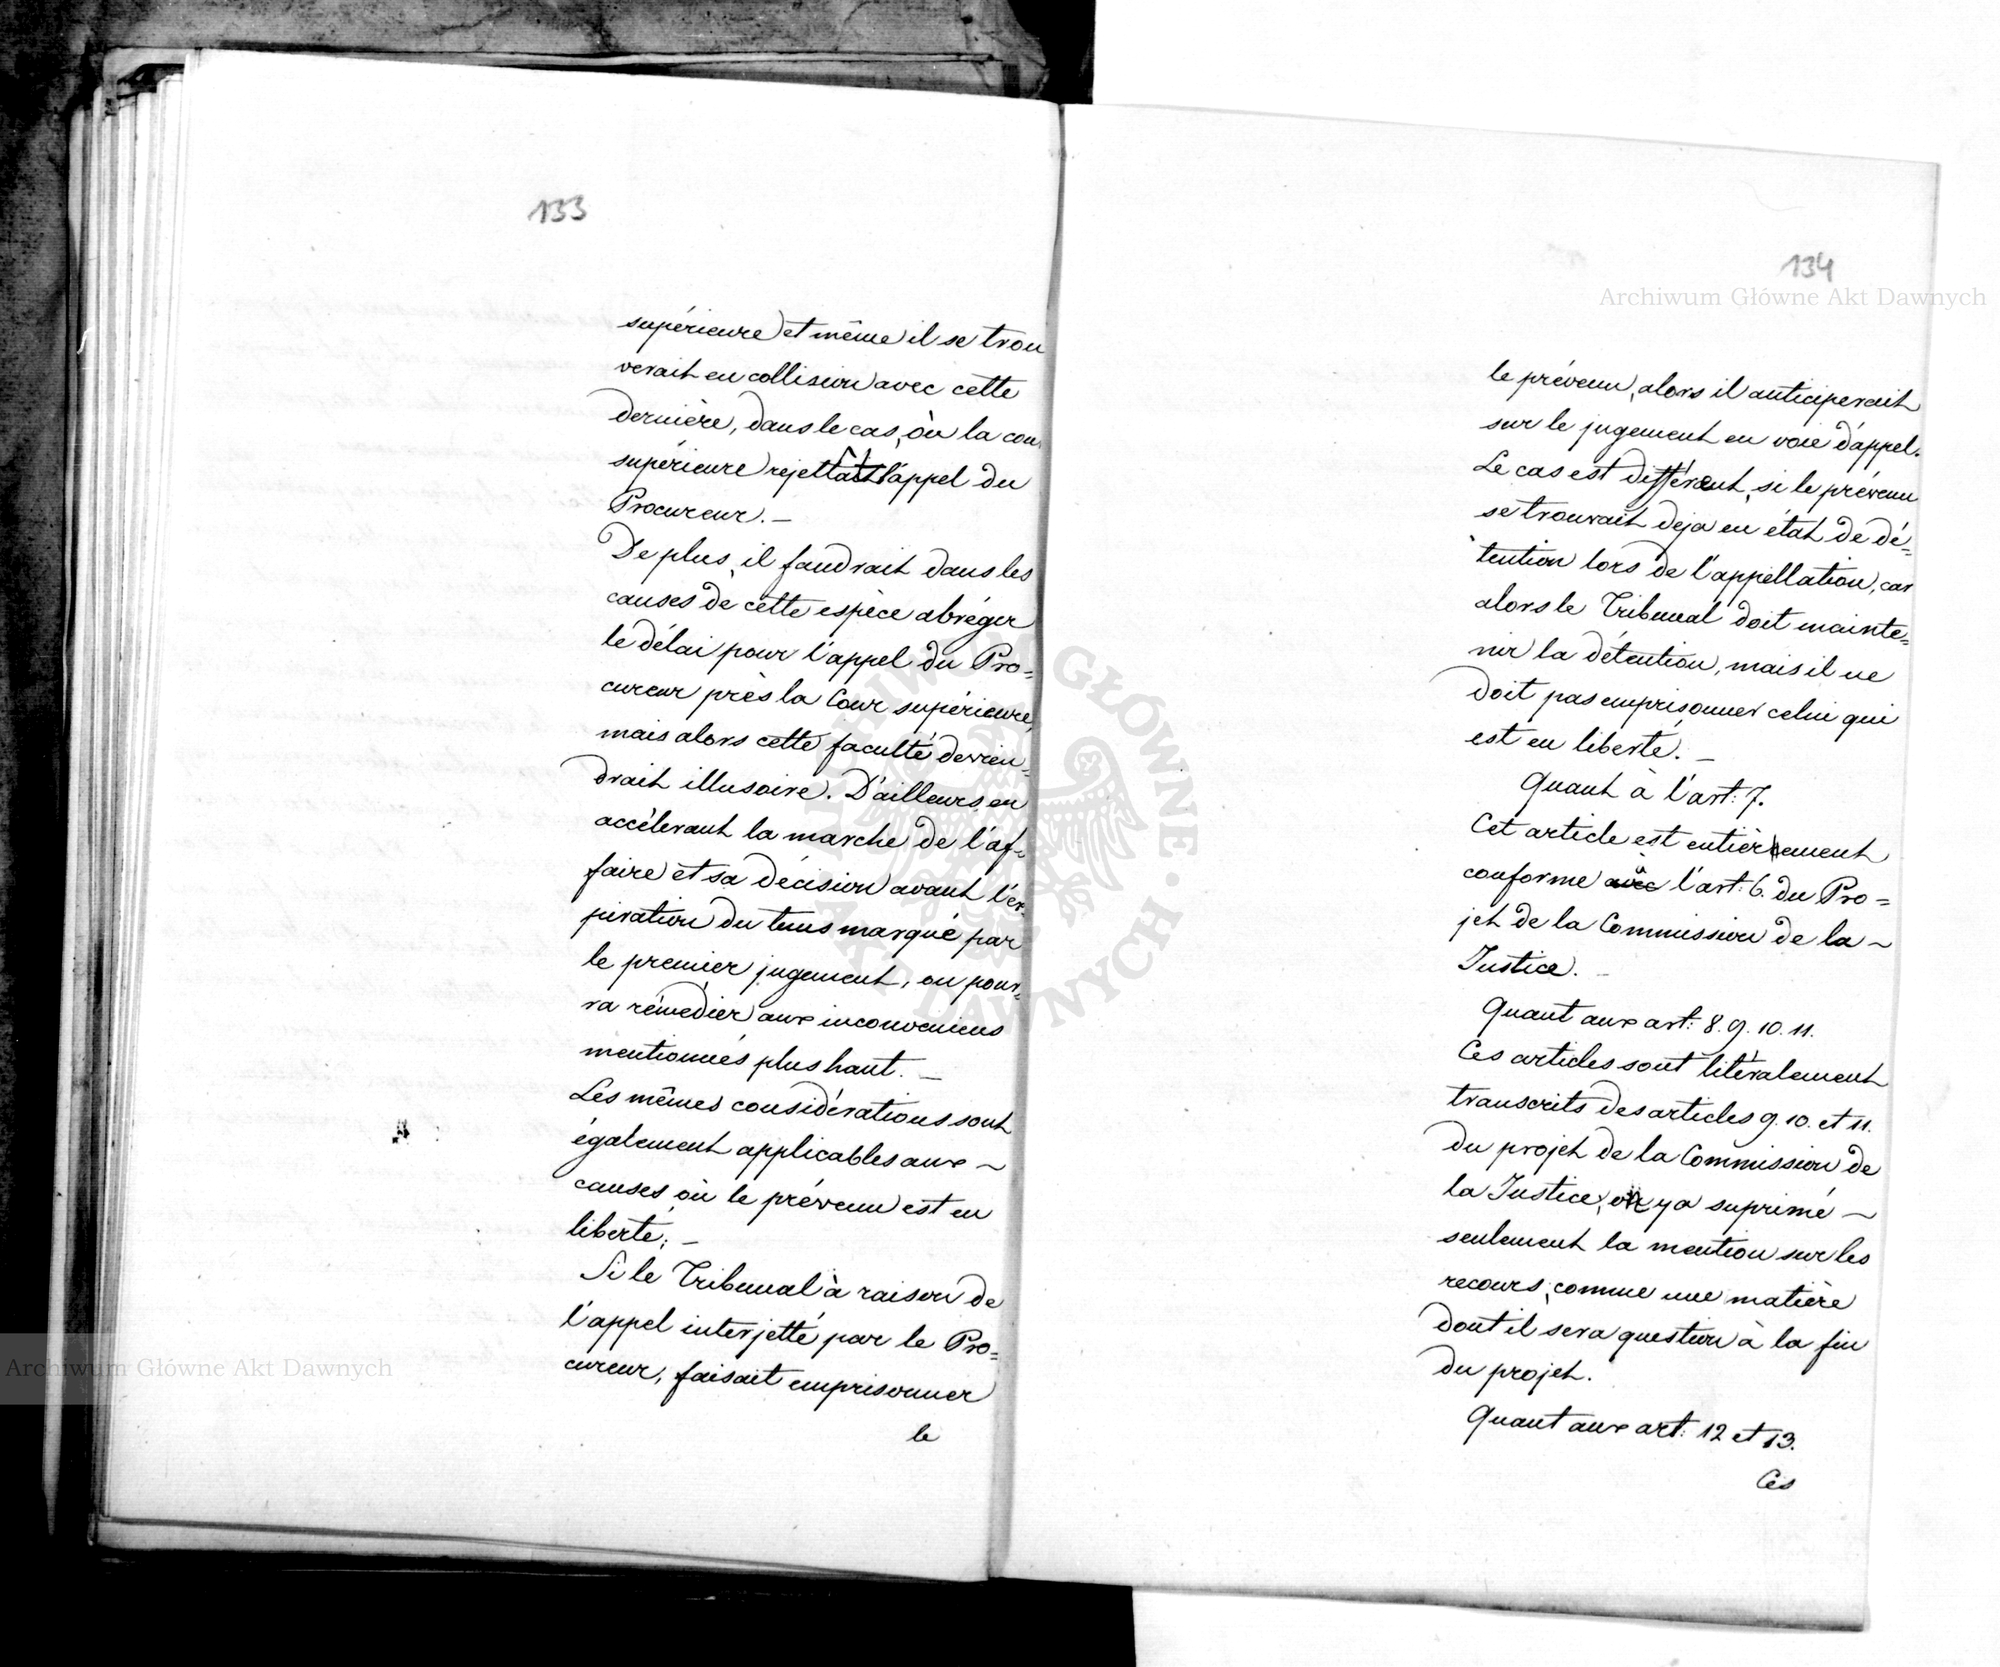 133
supérieure et même il se trou
verait en collision avec cette
dernière, dans le cas, où la cou
supérieure rejettait l'appel du
Procureur. –
De plus, il faudrait dans les
causes de cette espèce abréger
le délai pour l'appel du Pro=
cureur près la Cour supérieure,
mais alors cette faculté devien=
drait illusoire. D'ailleurs, en
accélerant la marche de l'af=
faire et sa décision avant l'ex=
piration du tems marqué par
le premier jugement, on pour=
ra rémedier aux inconveniens
mentionnés plus haut. –
Les mêmes considérations sont
également applicables aux ~
causes où le prévenu est en
liberté; –
Si le Tribunal à raison de
l'appel interjetté par le Pro=
cureur, faisait emprisonner
le
134
Archiwum Główne Akt Dawnych
le prévenu, alors il anticiperait
sur le jugement en voie d'appel.
Le cas est différent, si le prévenu
se trouvait deja en état de dé=
tention lors de l'appellation, car
alors le Tribunal doit mainte=
nir la détention, mais il ne
doit pas emprisonner celui qui
est en liberté. –
Quant à l'art: 7.
Cet article est entièrement
conforme avec à l'art: 6. du Pro=
jet de la Commission de la ~
Justice. –
Quant aux art: 8. 9. 10. 11.
Ces articles sont litéralement
transcrits des articles 9. 10. et 11.
du projet de la Commission de
la Justice, on y a suprimé ~
seulement la mention sur les
recours, comme une matière
dont il sera question à la fin
du projet.
Quant aux art: 12 et 13.
Ces
Archiwum Główne Akt Dawnych
ARCHIWUM GŁÓWNE AKT DAWNYCH